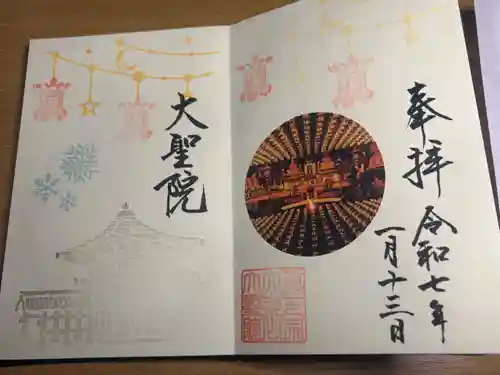 奉拝
令和七年
一月十三日
大聖院